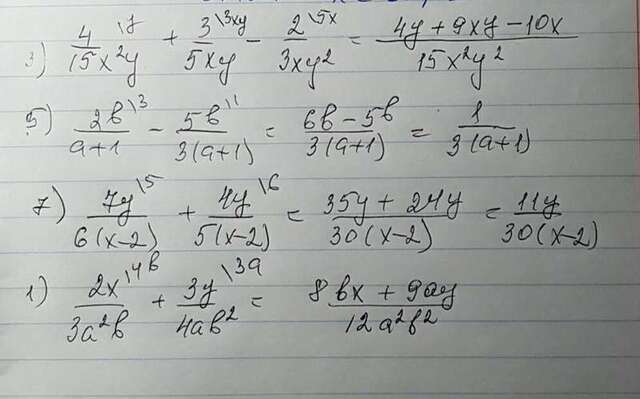 3) 4/15x²y \y + 3/5xy \3xy − 2/3xy² \5x = (4y + 9xy − 10x)/15x²y²
5) 2b/(a+1) \3 − 5b/3(a+1) \1 = (6b − 5b)/3(a+1) = 1/3(a+1)
7) 7y/6(x−2) \5 + 4y/5(x−2) \6 = (35y + 24y)/30(x−2) = 11y/30(x−2)
1) 2x/3a²b \4b + 3y/4ab² \3a = (8bx + 9ay)/12a²b²